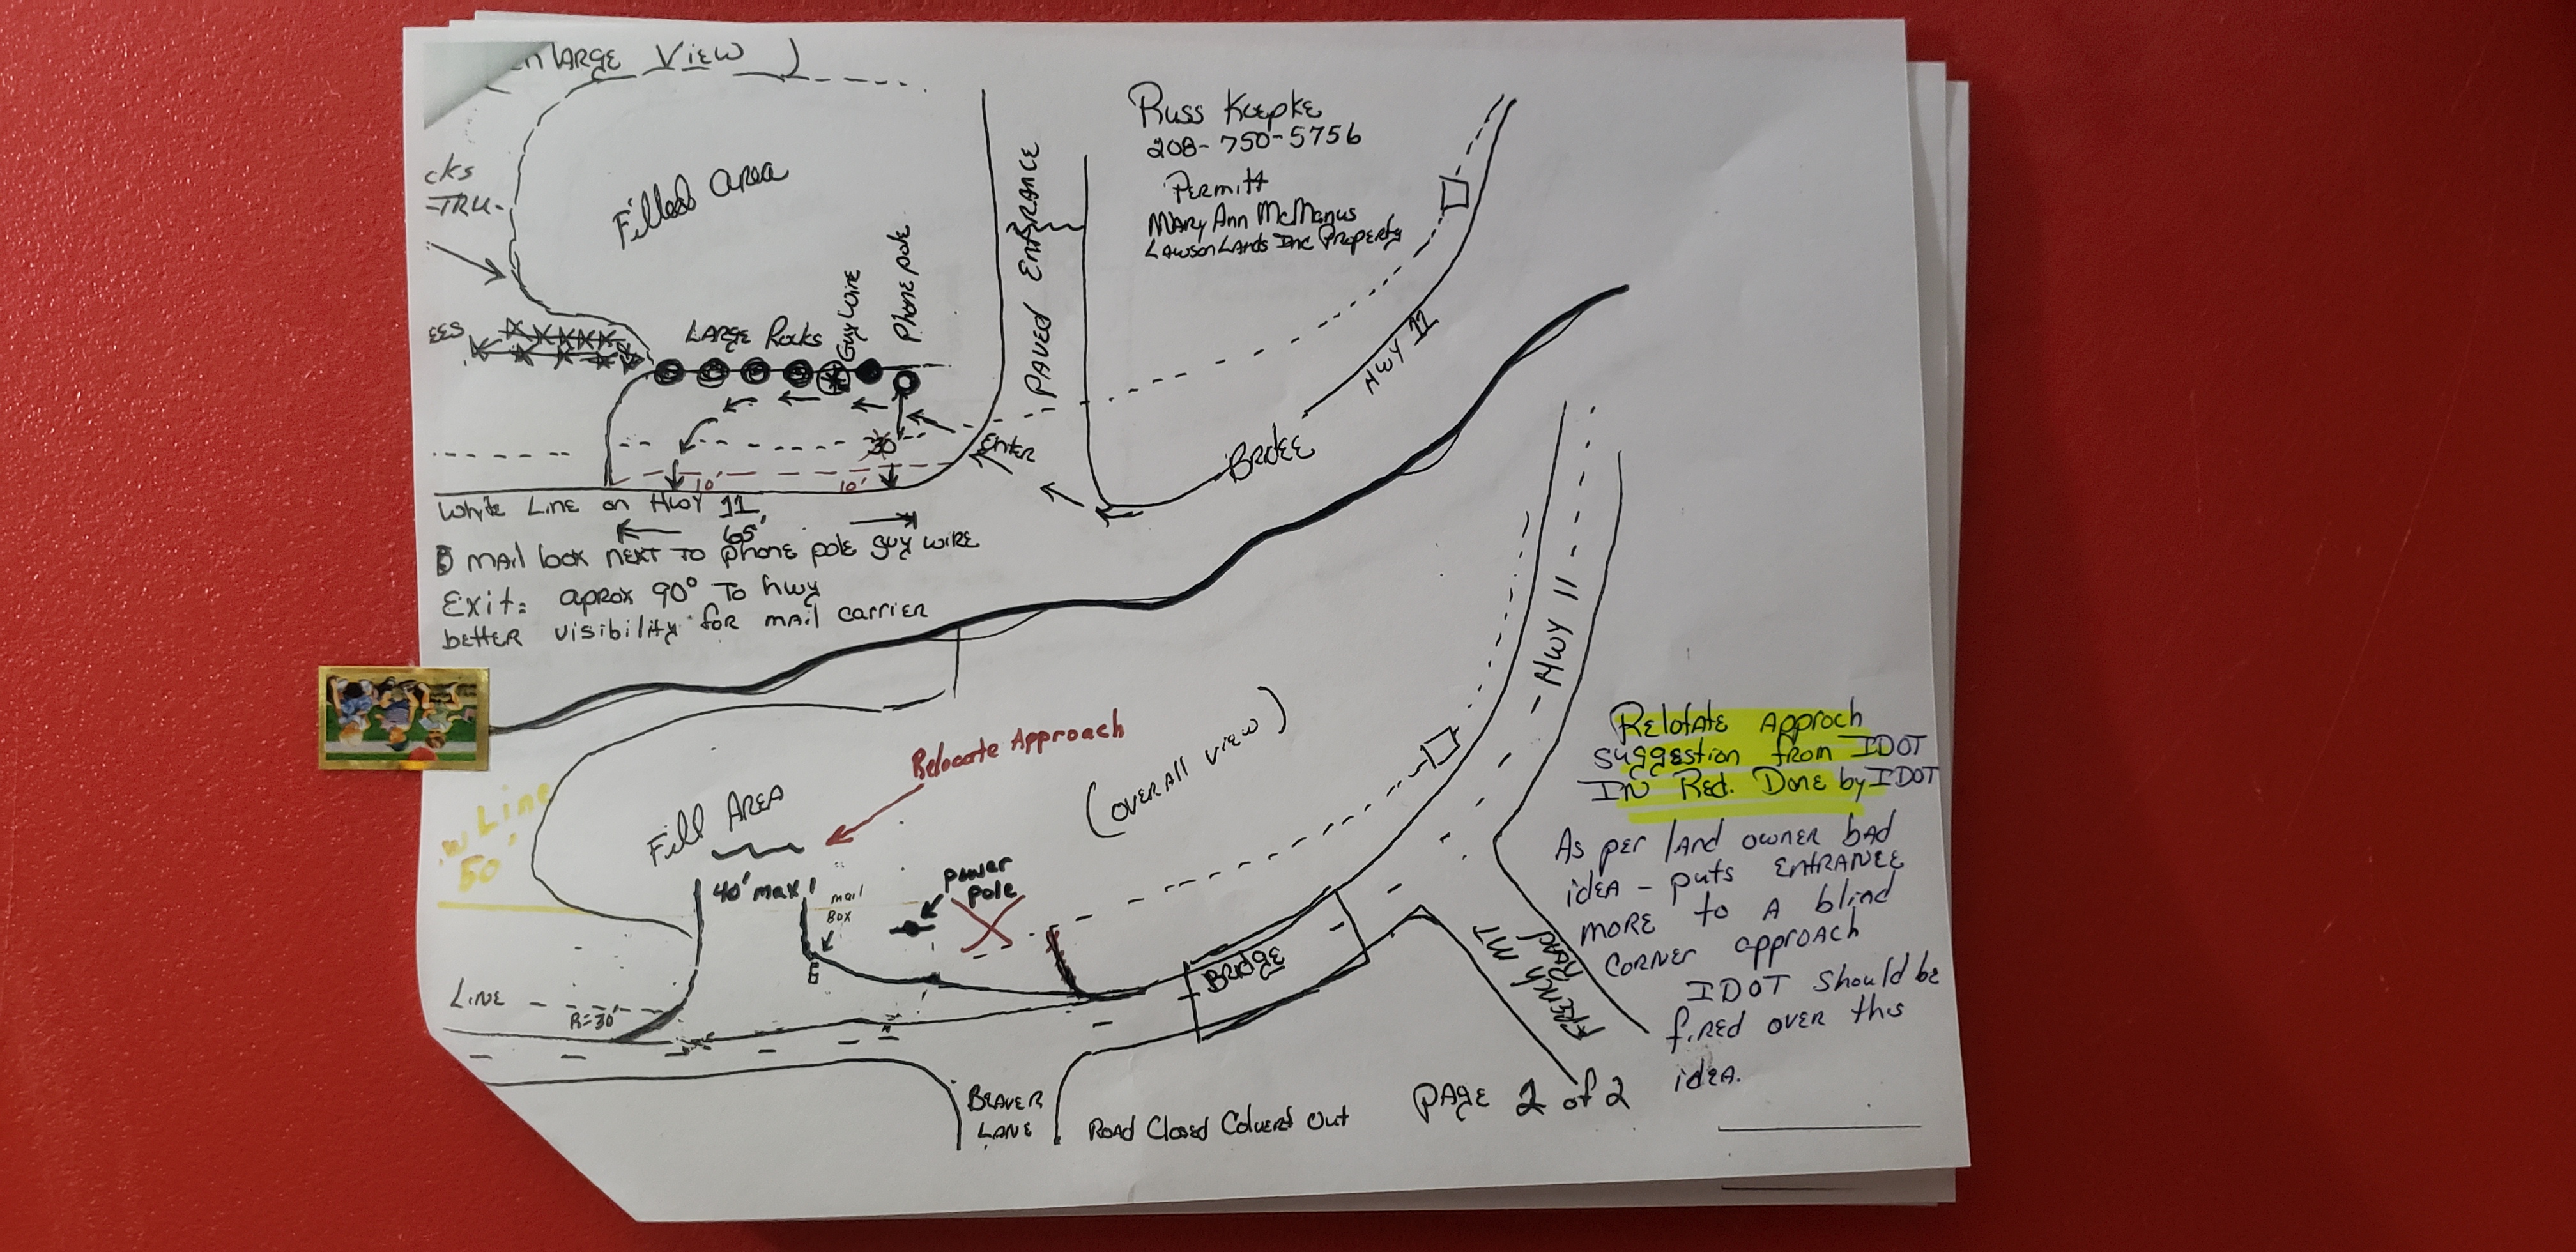 Enlarge View )
Filled Area
cks
TRU
EES
LARGE Rocks
Guy Wire
Phone pole
PAVED ENTRANCE
Russ Koepke
208-750-5756
Permitt
Mary Ann McManus
Lawson Lands Inc Property
Hwy 11
BRDEE
Enter
30'
10'
10'
White Line on Hwy 11
65'
mail box next to phone pole guy wire
Exit: aprox 90° To hwy
better visibility for mail carrier
Relocate Approach
(Overall view)
Hwy 11
w Line
50'
Fill Area
40' max
mail
Box
power
pole
Bridge
French MT
Road
Line
R=30'
Beaver
Lane
Road Closed Colverd Out
Page 2 of 2
Relotate Approch
suggestion from IDOT
IN Red. Done by IDOT
As per land owner bad
idea - puts entranee
more to a blind
corner approach
IDOT should be
fired over this
idea.